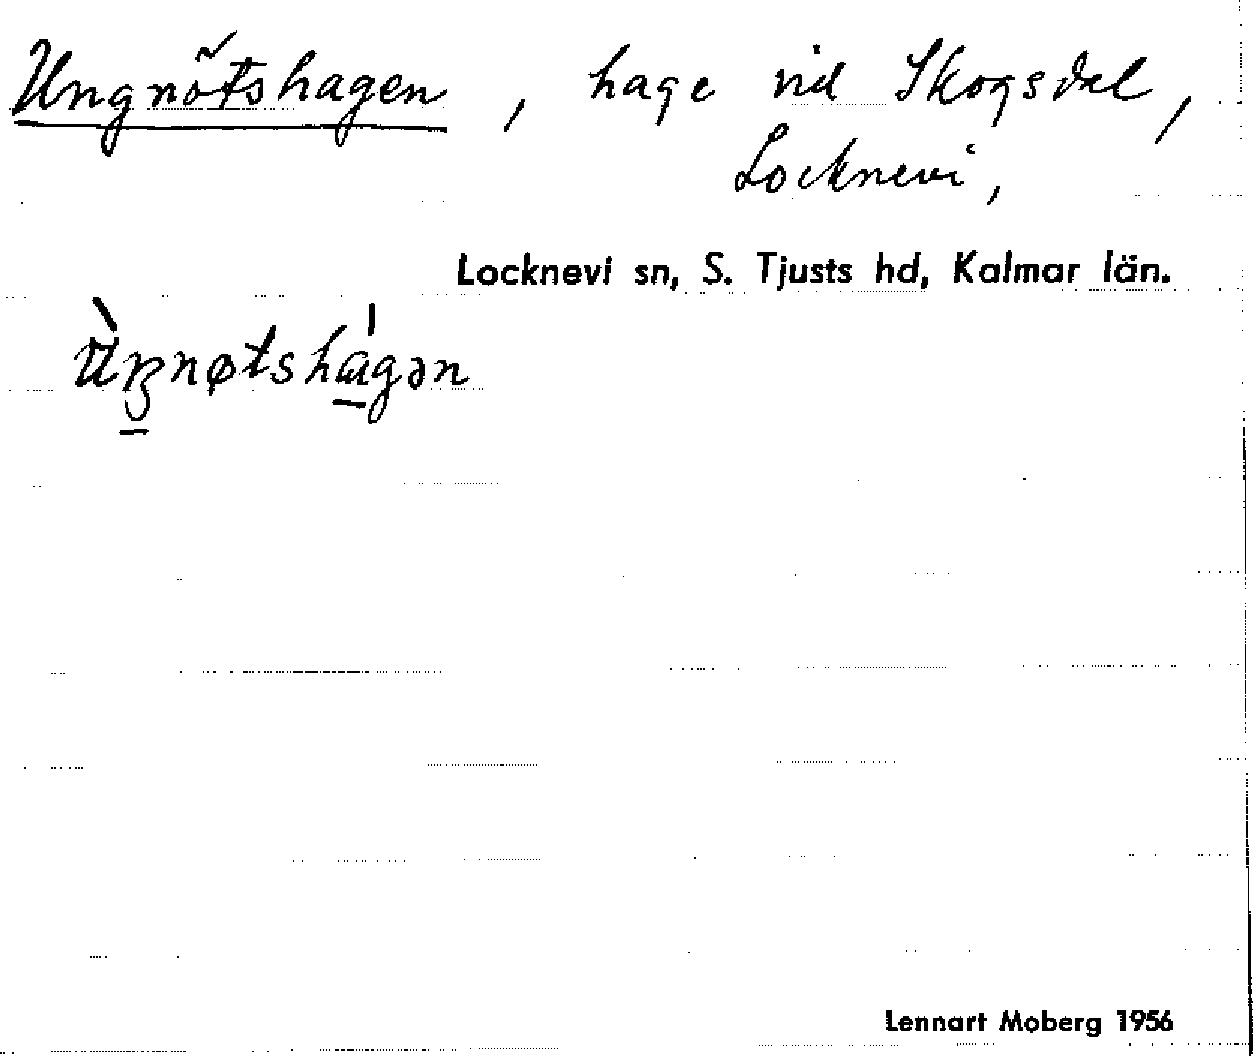 Ungnötshagen, hage vid Skogsdal,
Locknevi,
Locknevi sn, S. Tjusts hd, Kalmar län.
Lennart Moberg 1956